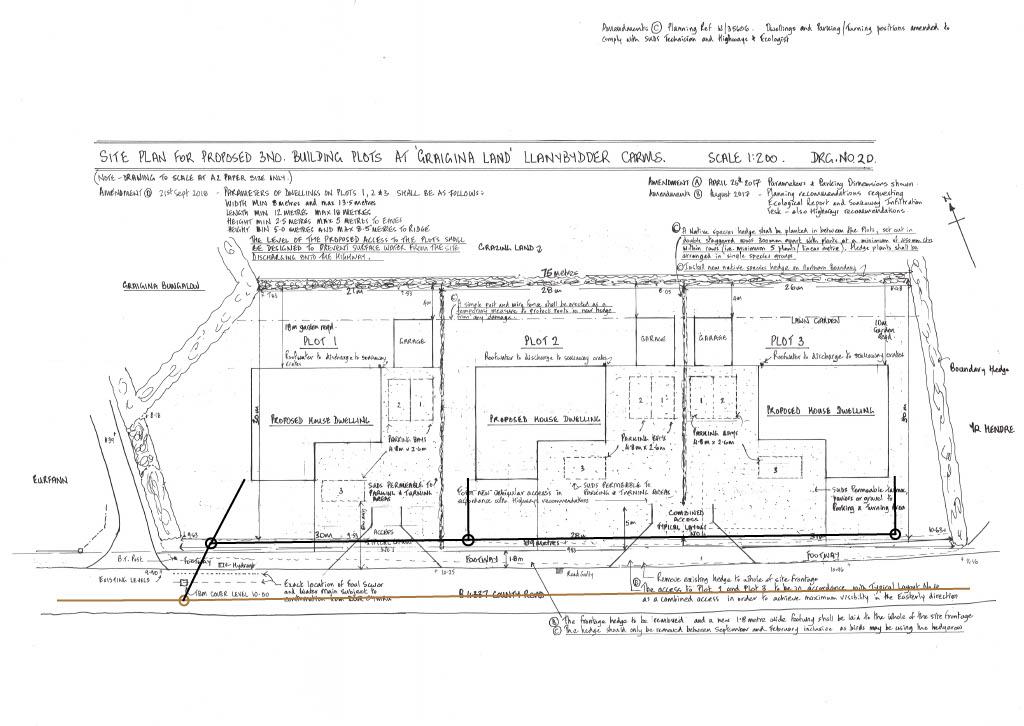 Amendments (C) Planning Ref W/35606. Dwellings and Parking/Turning positions amended to
comply with SUDS Technician and Highways & Ecologist
SITE PLAN FOR PROPOSED 3NO. BUILDING PLOTS AT 'GRAIGINA LAND' LLANYBYDDER CARMS. SCALE 1:200. DRG.NO.2D.
(NOTE - DRAWING TO SCALE AT A2 PAPER SIZE ONLY.)
AMENDMENT (D) 21st SEPT 2018 - PARAMETERS OF DWELLINGS ON PLOTS 1, 2 & 3 SHALL BE AS FOLLOWS:
WIDTH MIN 8 metres and max 13.5 metres
LENGTH MIN 12 METRES MAX 18 METRES
HEIGHT MIN 2.5 METRES MAX 5 METRES TO EAVES
HEIGHT MIN 5.0 METRES AND MAX 8.5 METRES TO RIDGE
THE LEVEL OF THE PROPOSED ACCESS TO THE PLOTS SHALL
BE DESIGNED TO PREVENT SURFACE WATER FROM THE SITE
DISCHARGING ONTO THE HIGHWAY.
AMENDMENT (A) APRIL 26th 2017 Parameters & Parking Dimensions shown
AMENDMENTS (B) August 2017 - Planning recommendations requesting
Ecological Report and Soakaway Infiltration
Test - also Highways recommendations.
N
(C) A Native species hedge shall be planted in between the Plots, set out in
double staggered rows 300mm apart with plants at a minimum of 450mm ctrs
within rows (i.e. minimum 5 plants / linear metre). Hedge plants shall be
arranged in single species groups.
(C) Install new native species hedge on Northern Boundary
GRAZING LAND
GRAIGINA BUNGALOW
76 metres
21m
28m
26m
4m
4m
(C) A simple post and wire fence shall be erected as a
temporary measure to protect roots of new hedge
from any damage.
18m garden reqd.
LAWN GARDEN
10m
Garden
Reqd.
PLOT 1
GARAGE
PLOT 2
GARAGE
GARAGE
PLOT 3
Roofwater to discharge to soakaway
crates
Roofwater to discharge to soakaway crates
Roofwater to discharge to soakaway crates
Boundary Hedge
PROPOSED HOUSE DWELLING
PROPOSED HOUSE DWELLING
PROPOSED HOUSE DWELLING
2 1
2 1
1 2
PARKING BAYS
4.8m x 2.6m
PARKING BAYS
4.8m x 2.6m
PARKING BAYS
4.8m x 2.6m
YR HENDRE
8.18
30m
3
3
3
EURFANN
SUDS PERMEABLE TO
PARKING & TURNING
AREAS
SUDS PERMEABLE TO
PARKING & TURNING AREAS
accordance with Highways recommendations
SUDS Permeable tarmac,
paviors or gravel to
Parking & Turning Area
COMBINED
ACCESS
TYPICAL LAYOUT
5m
ACCESS
30m
28m
FOOTWAY
FOOTWAY
FOOTWAY
1.8m
B.T. Post
Hydrant
EXISTING LEVELS
9.90
10.25
10.96
Road Gully
Exact location of foul Sewer
and Water Main subject to
TBM COVER LEVEL 10.00
B4337 COUNTY ROAD
Remove existing hedge to whole of site frontage
(D) The access to Plot 2 and Plot 3 to be in accordance with Typical Layout No.10
as a combined access in order to achieve maximum visibility in the Easterly direction
(B) The frontage hedge to be removed and a new 1.8 metre wide footway shall be laid to the whole of the site frontage
(C) The hedge should only be removed between September and February inclusive as birds may be using the hedgerow